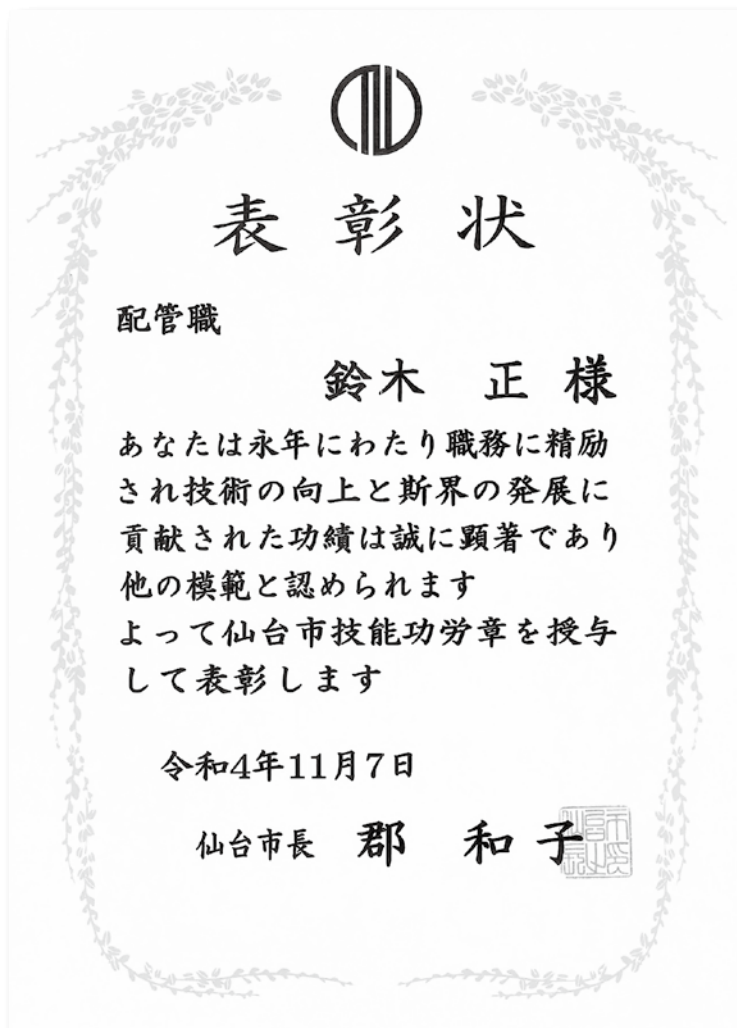 表彰状
配管職
鈴木 正 様
あなたは永年にわたり職務に精励
され技術の向上と斯界の発展に
貢献された功績は誠に顕著であり
他の模範と認められます
よって仙台市技能功労章を授与
して表彰します
令和4年11月7日
仙台市長 郡 和子